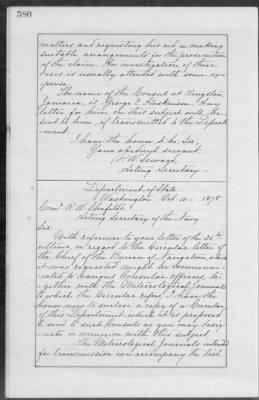 580
matters and requesting his aid in making
suitable arrangements for the prosecution
of the claim. An investigation of these
cases is usually attended with some ex-
pense.
The name of the Consul at Kingston,
Jamaica, is George E. Hoskinson. Any
letter for him on this subject will be
sent to him, if transmitted to the Depart-
ment.
I have the honor to be, Sir,
Your obedient servant
F. W. Seward,
Acting Secretary.
Department of State
Washington Oct. 10 - 1878
Com. R. W. Shufeldt,
Acting Secretary of the Navy.
Sir:
With reference to your letter of the 25th
ultimo, in regard to the Circular letter of
the Chief of the Bureau of Navigation, which
it was requested might be communi-
cated to various Consular officers, to-
gether with the Meteorological Journals
to which the Circular refers, I have the
honor, now, to enclose a copy of a Circular
of this Department which it is proposed
to send to such Consuls as you may desig-
nate in connexion with this subject.
The Meteorological Journals intended
for transmission can accompany the list